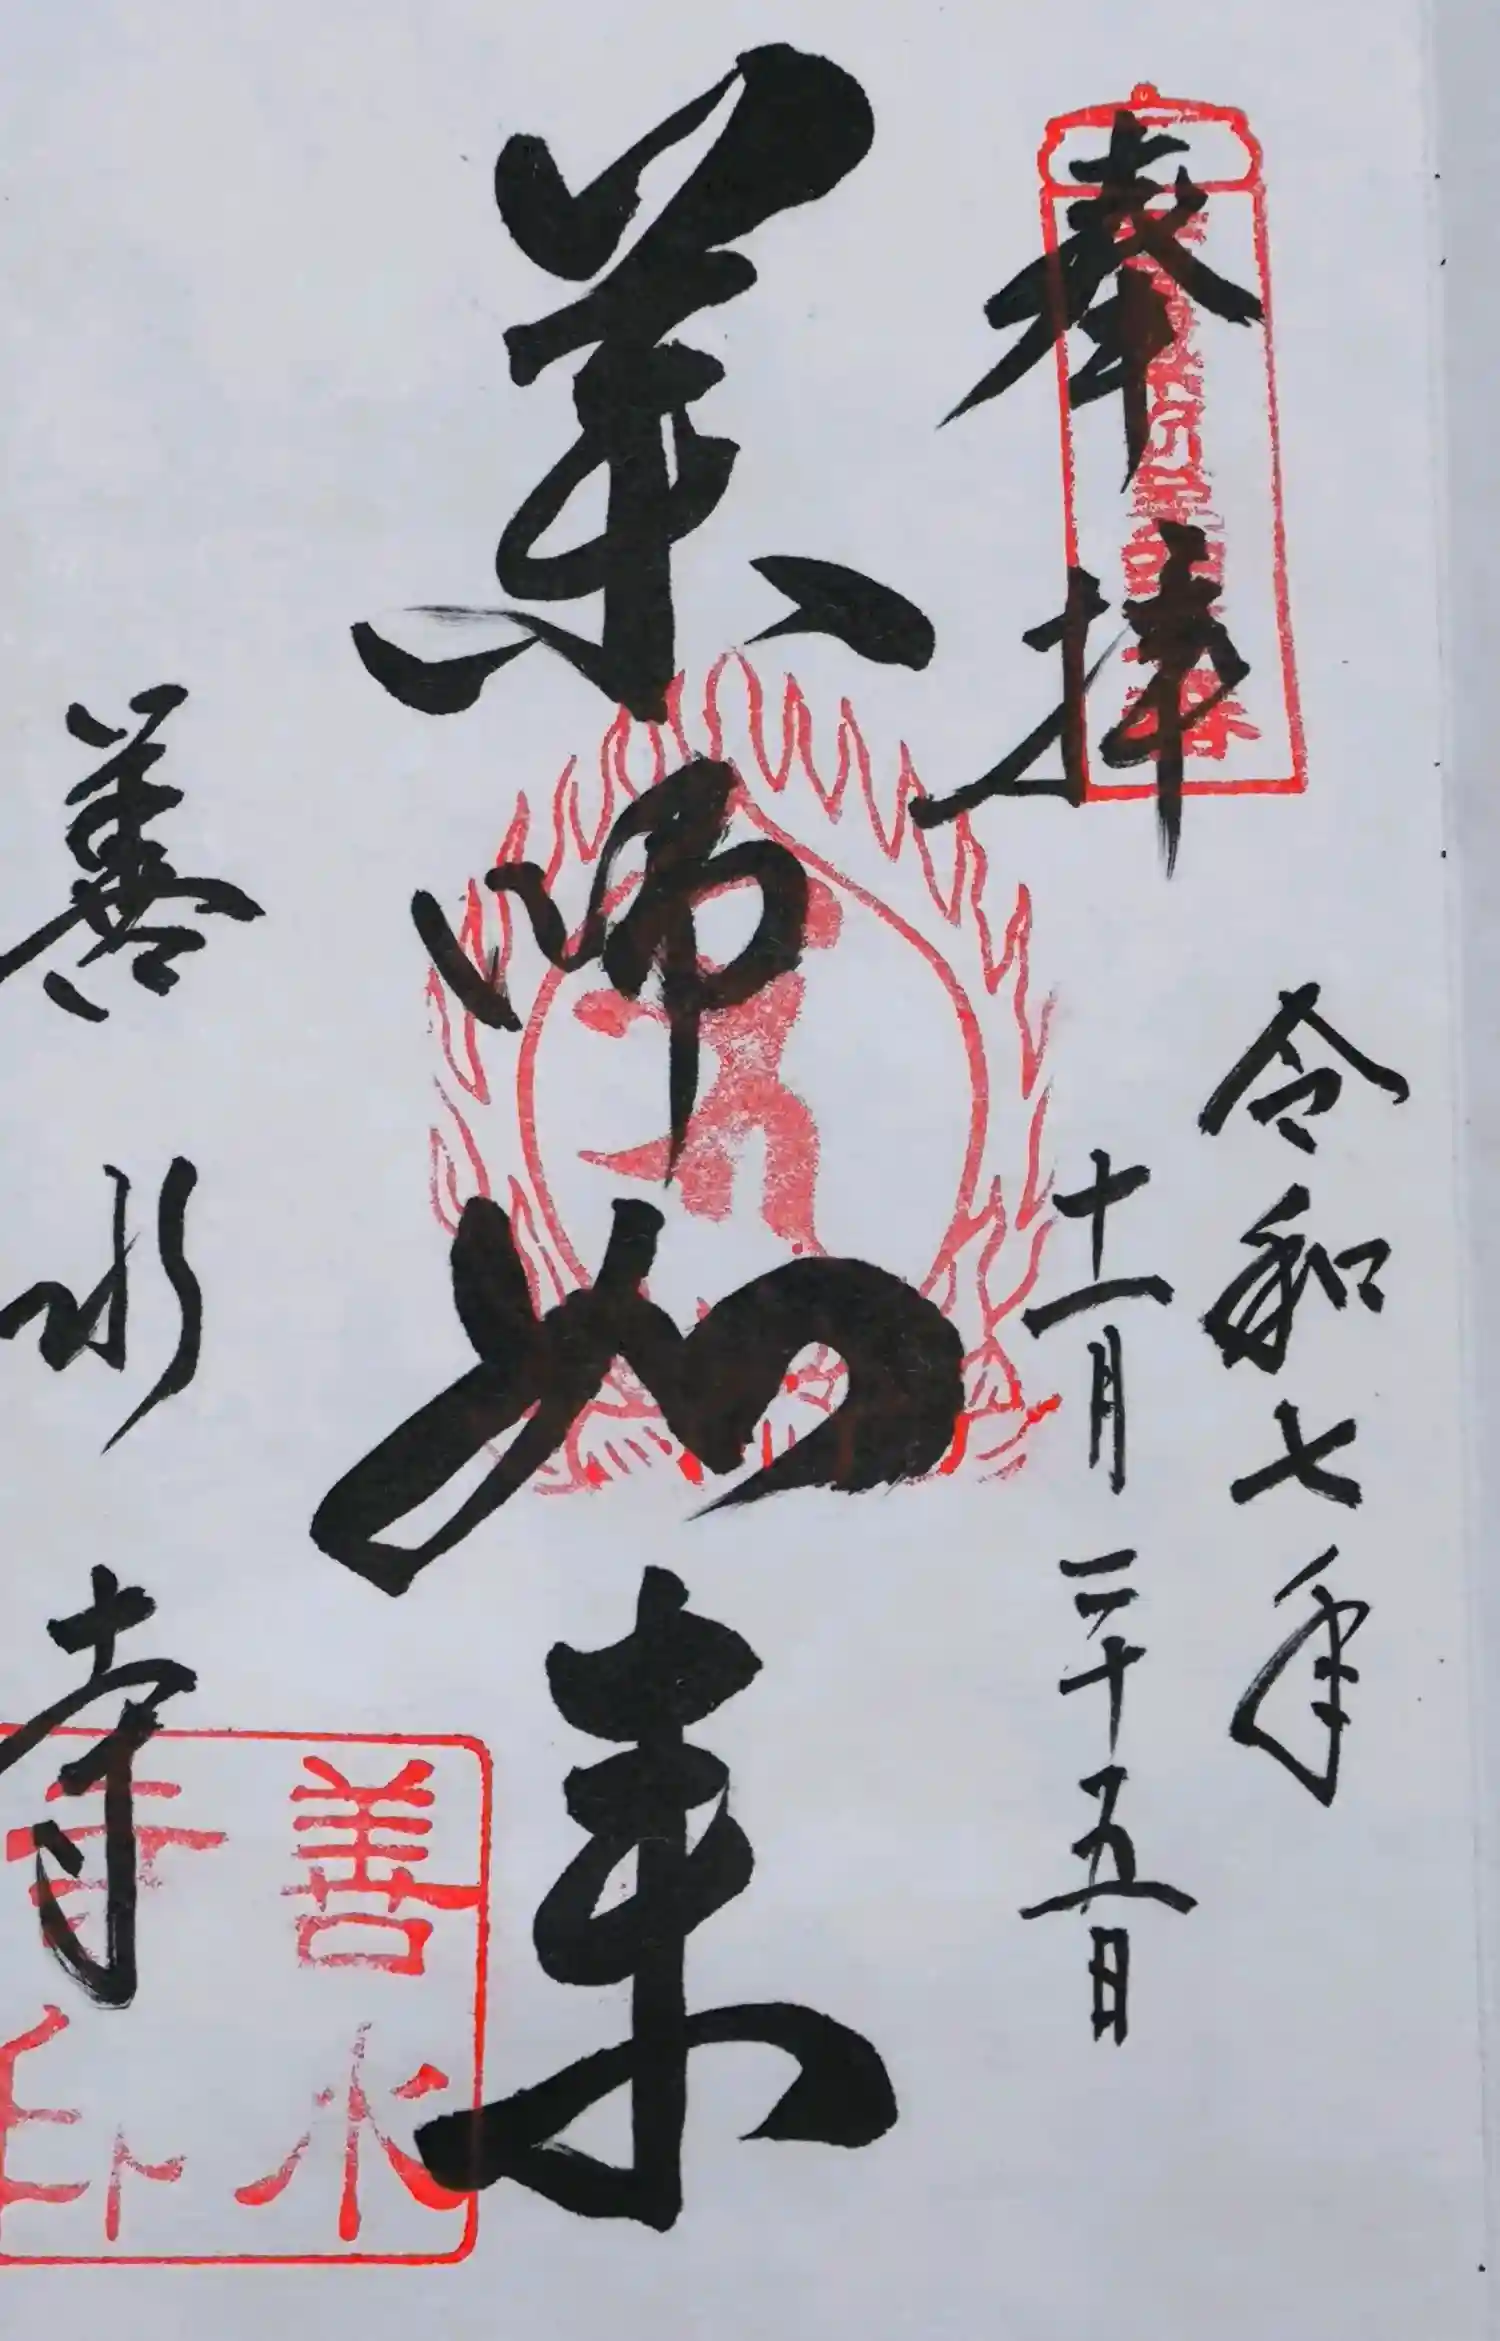 奉拝
令和七年
十一月二十五日
薬師如来
善水寺
善水寺印